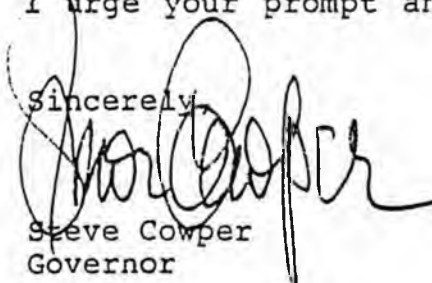 I urge your prompt an
Sincerely,
Steve Cowper
Steve Cowper
Governor